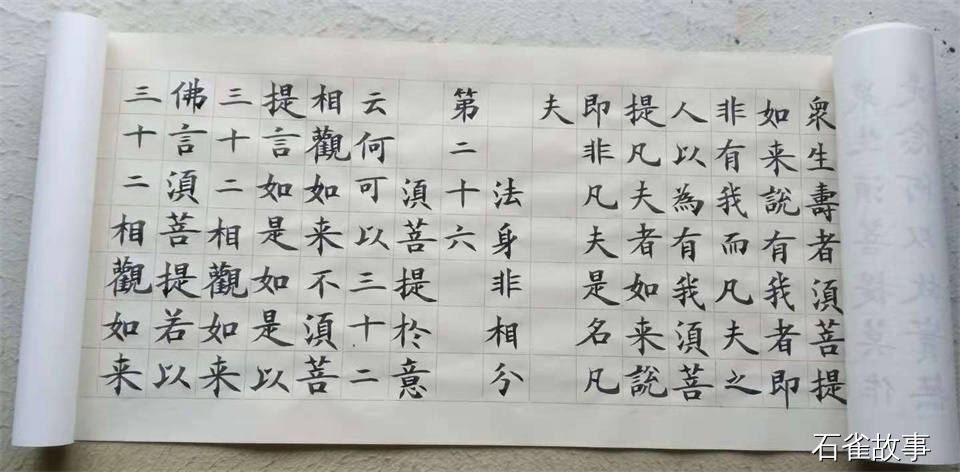 衆生壽者湏菩提
如来說有我者即
非有我而凡夫之
人以為有我湏菩
提凡夫者如来說
即非凡夫是名凡
夫
法身非相分
第二十六
湏菩提扵意
云何可以三十二
相觀如来不湏菩
提言如是如是以
三十二相觀如来
佛言湏菩提若以
三十二相觀如来
石雀故事